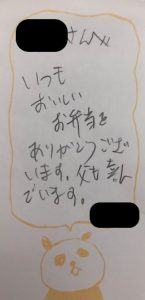 さんへ
いつも
おいしい
お弁当を
ありがとうござい
います。父も喜ん
でいます。